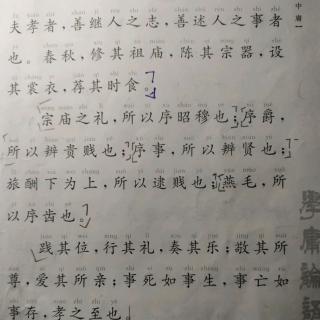 中庸
夫孝者，善继人之志，善述人之事者
也。春秋，修其祖庙，陈其宗器，设
其裳衣，荐其时食。
宗庙之礼，所以序昭穆也；序爵，
所以辨贵贱也；序事，所以辨贤也；
旅酬下为上，所以逮贱也；燕毛，所
以序齿也。
践其位，行其礼，奏其乐；敬其所
尊，爱其所亲；事死如事生，事亡如
事存，孝之至也。
學庸論語